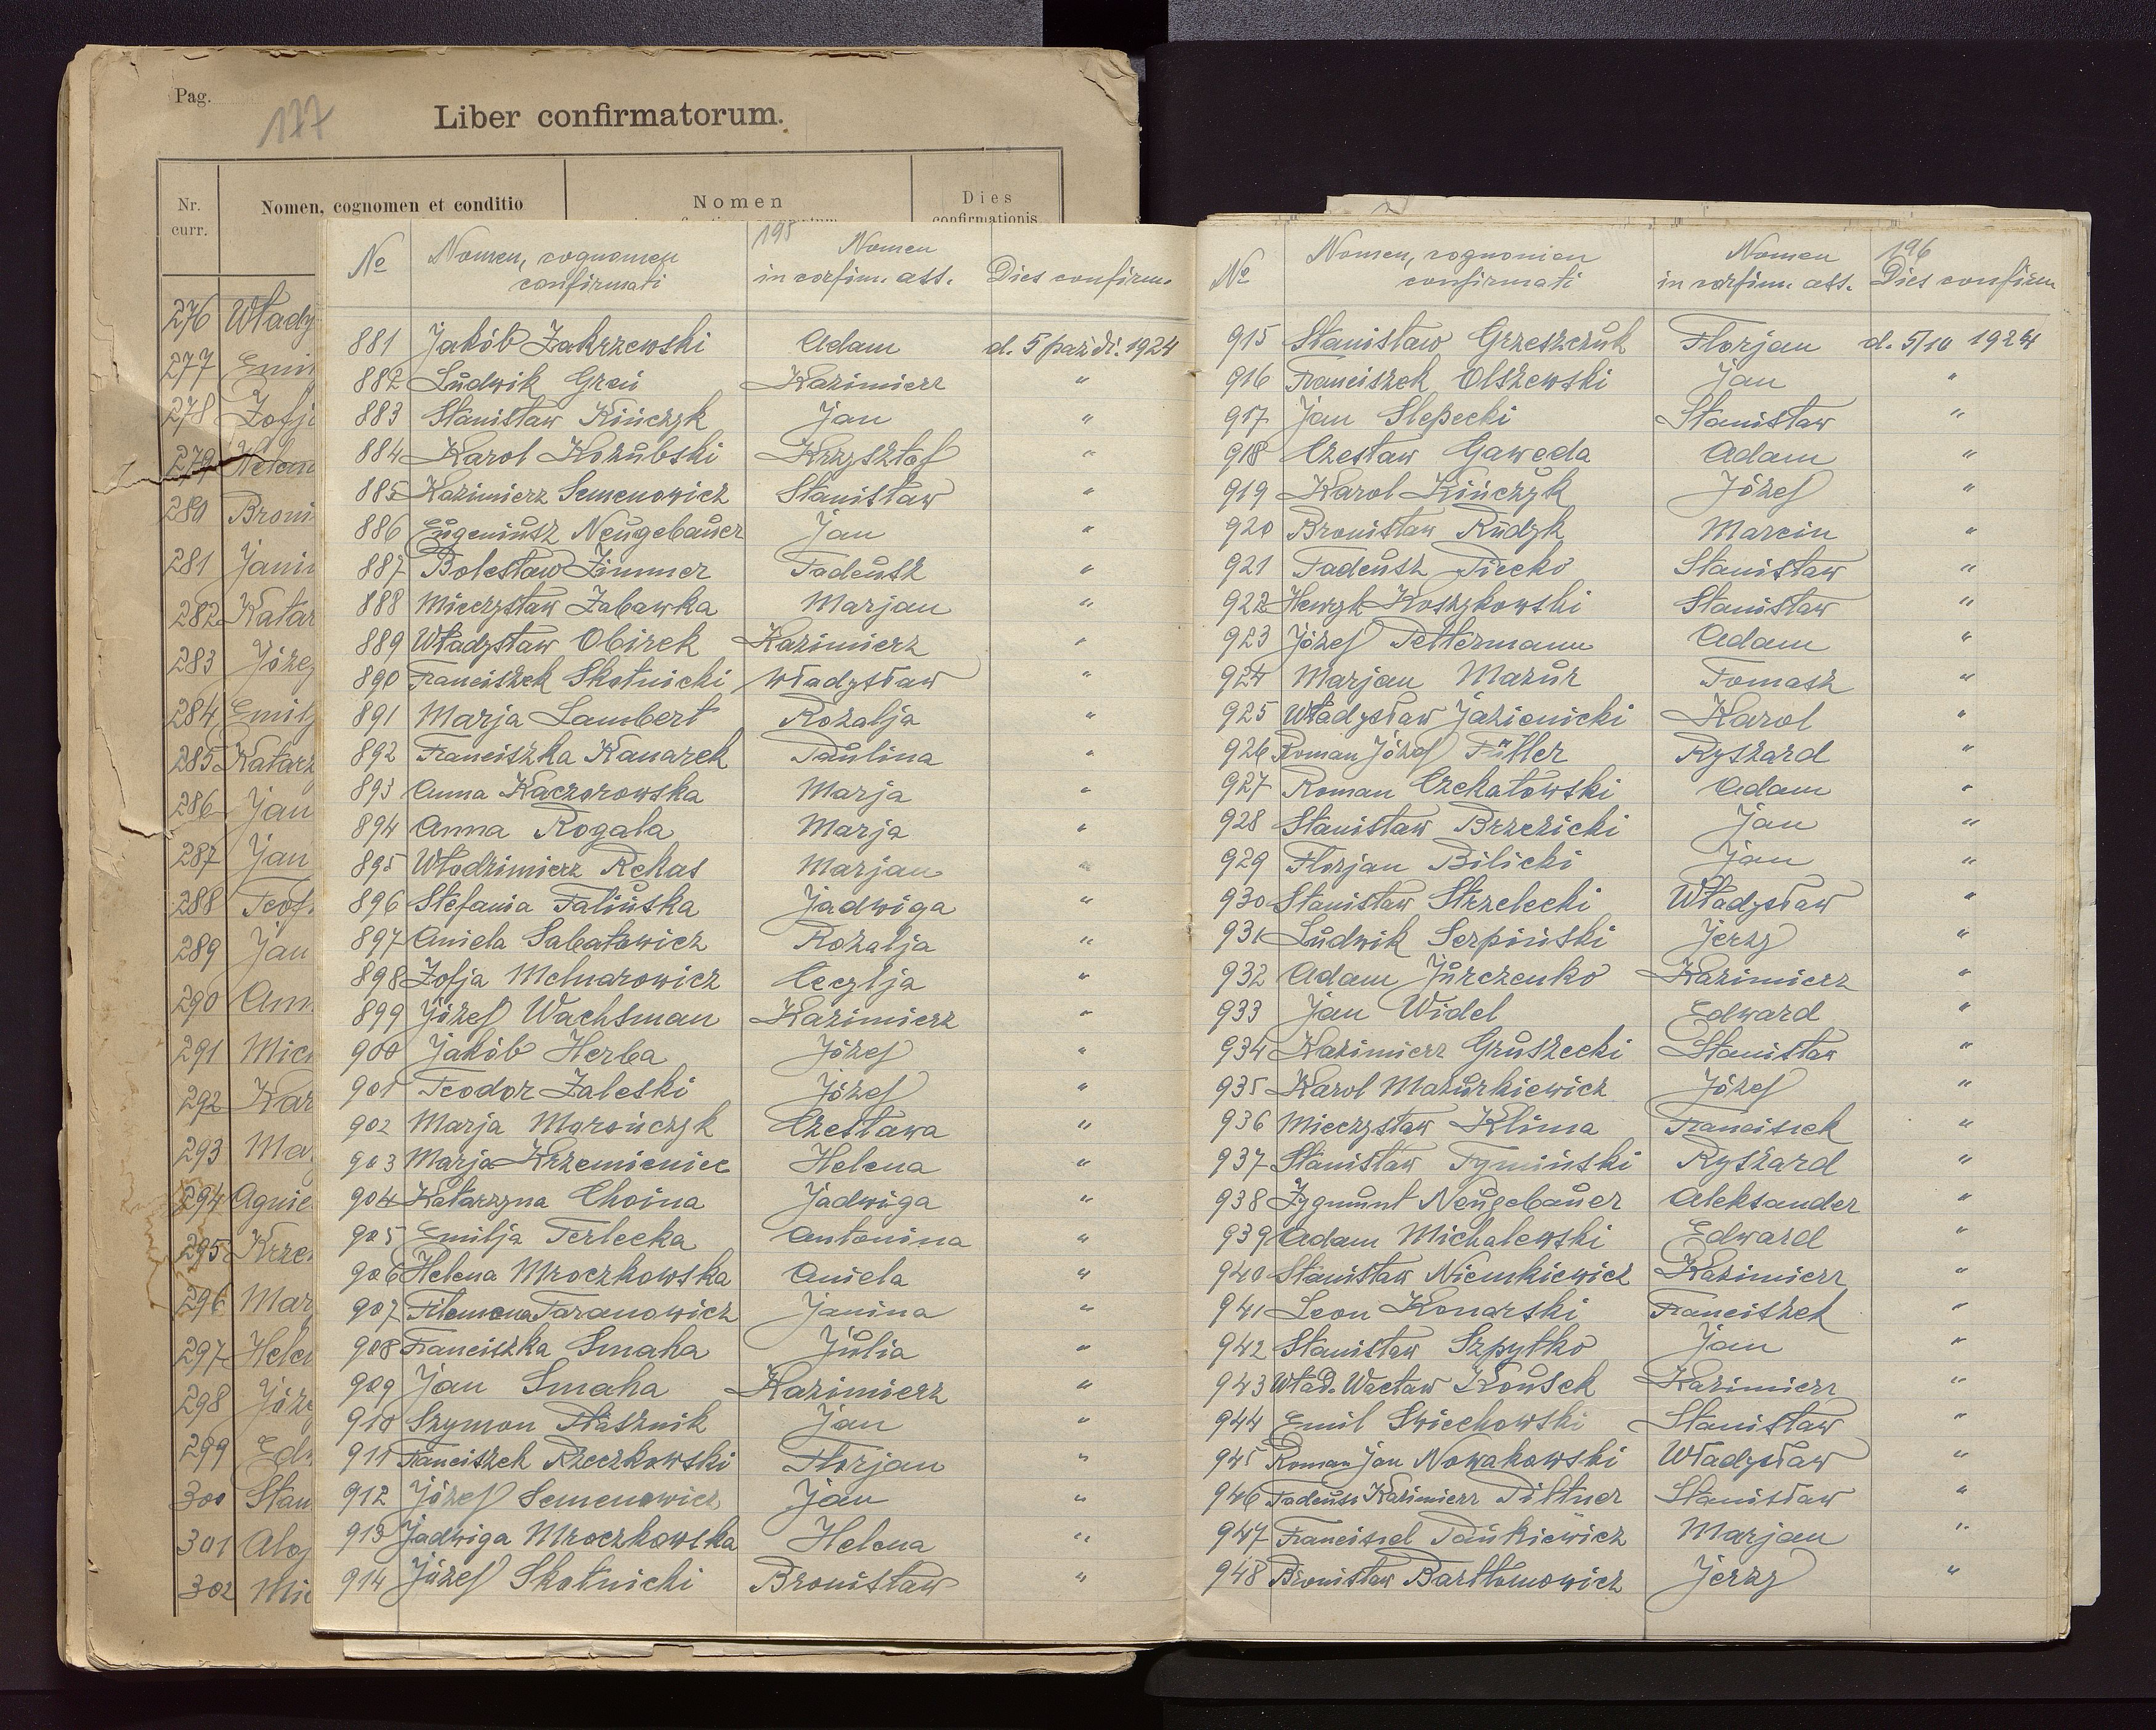 Pag.
177
Liber confirmatorum.
Nr. curr.
Nomen, cognomen et conditio
Nomen
Dies confirmationis
276 Włady
277 Emi
278 Zofj
279 Helen
280 Broni
281 Jani
282 Katar
283 Józe
284 Emil
285 Katarz
286 Jan
287 Jan
288 Teof
289 Jan
290 Ann
291 Mich
292 Kar
293 Mar
294 Agnie
295 Krze
296 Mar
297 Hele
298 Józe
299 Edw
300 Stan
301 Aloj
302 Mic
195
№ Nomen, cognomen confirmati Nomen in confirm. ass. Dies confirm.
881 Jakób Zakrzewski Adam d. 5 paźdź. 1924
882 Ludwik Greń Kazimierz "
883 Stanisław Kińczyk Jan "
884 Karol Kozubski Krzysztof "
885 Kazimierz Semenowicz Stanisław "
886 Eugeniusz Neugebauer Jan "
887 Bolesław Zimmer Tadeusz "
888 Mieczysław Zabawka Marjan "
889 Władysław Obirek Kazimierz "
890 Franciszek Skotnicki Władysław "
891 Marja Lambert Rozalja "
892 Franciszka Kanarek Paulina "
893 Anna Kaczorowska Marja "
894 Anna Rogala Marja "
895 Włodzimierz Rekas Marjan "
896 Stefania Falińska Jadwiga "
897 Aniela Sabatowicz Rozalja "
898 Zofja Melnarowicz Cecylja "
899 Józef Wachsman Kazimierz "
900 Jakób Herba Józef "
901 Teodor Zaleski Józef "
902 Marja Marończyk Czesława "
903 Marja Krzemieniec Helena "
904 Katarzyna Choina Jadwiga "
905 Emilja Terlecka Antonina "
906 Helena Mroczkowska Aniela "
907 Filomena Taranowicz Janina "
908 Franciszka Smaha Julia "
909 Jan Smaha Kazimierz "
910 Szymon Ptasznik Jan "
911 Franciszek Rzeczkowski Florjan "
912 Józef Semenowicz Jan "
913 Jadwiga Mroczkowska Helena "
914 Józef Skotnicki Bronisław "
196
№ Nomen, cognomen confirmati Nomen in confirm. ass. Dies confirm
915 Stanisław Grzeszczuk Florjan d. 5/10 1924
916 Franciszek Olszewski Jan "
917 Jan Slepecki Stanisław "
918 Czesław Gaweda Adam "
919 Karol Kińczyk Józef "
920 Bronisław Rudzk Marcin "
921 Tadeusz Piecko Stanisław "
922 Henryk Koszykowski Stanisław "
923 Józef Pettermann Adam "
924 Marjan Mazur Tomasz "
925 Władysław Jazienicki Karol "
926 Roman Józef Füller Ryszard "
927 Roman Czekatowski Adam "
928 Stanisław Brzezicki Jan "
929 Florjan Bilicki Jan "
930 Stanisław Strzelecki Władysław "
931 Ludwik Serpiński Jerzy "
932 Adam Jurczenko Kazimierz "
933 Jan Widel Edward "
934 Kazimierz Gruszecki Stanisław "
935 Karol Mazurkiewicz Józef "
936 Mieczysław Klima Franciszek "
937 Stanisław Tymiński Ryszard "
938 Zygmunt Neugebauer Aleksander "
939 Adam Michalewski Edward "
940 Stanisław Niemkiewicz Kazimierz "
941 Leon Konarski Franciszek "
942 Stanisław Szpytko Jan "
943 Wład. Wacław Kousek Kazimierz "
944 Emil Swiechowski Stanisław "
945 Roman Jan Nowakowski Władysław "
946 Tadeusz Kazimierz Piltner Stanisław "
947 Franciszek Pankiewicz Marjan "
948 Bronisław Bartłomowicz Jerzy "